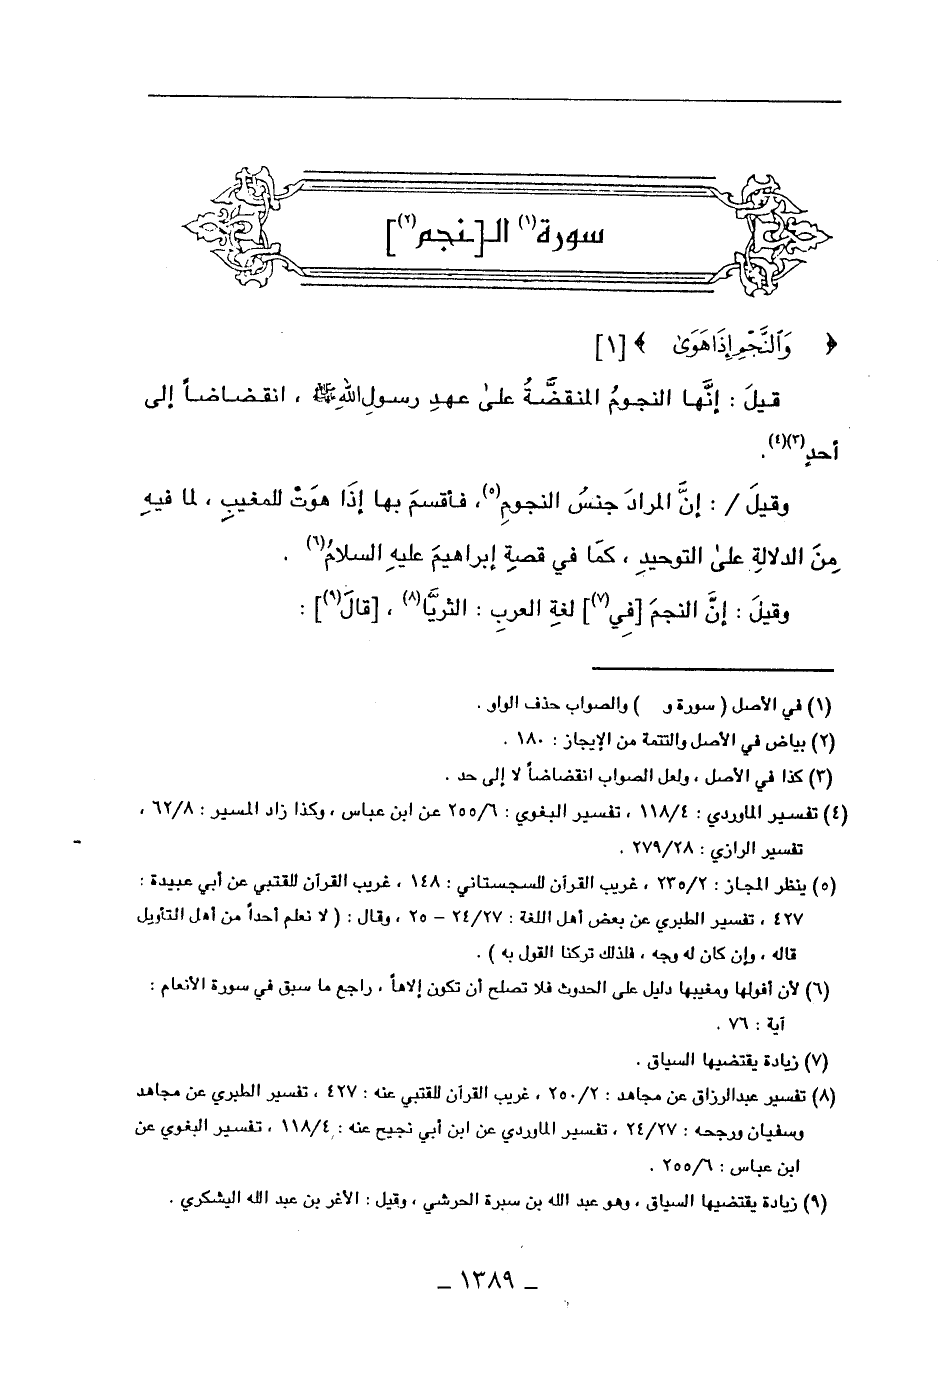 سورة(١) الـ[ـنجم(٢)]
﴿ وَٱلنَّجْمِ إِذَا هَوَىٰ ﴾ [١]
قيلَ : إنَّها النجومُ المنقضَّةُ علىٰ عهدِ رسولِ اللهِ ﷺ ، انقضاضاً إلى
أحدٍ(٣)(٤).
وقيلَ / : إنَّ المرادَ جنسُ النجومِ(٥)، فأقسمَ بها إذَا هوَتْ للمغيبِ ، لما فيهِ
مِنَ الدلالةِ علىٰ التوحيدِ ، كمَا في قصةِ إبراهيمَ عليهِ السلامُ(٦) .
وقيلَ : إنَّ النجمَ [في(٧)] لغةِ العربِ : الثريَّا(٨) ، [قالَ(٩)] :
(١) في الأصل ( سورة و ) والصواب حذف الواو .
(٢) بياض في الأصل والتتمة من الإيجاز : ١٨٠ .
(٣) كذا في الأصل ، ولعل الصواب انقضاضاً لا إلى حد .
(٤) تفسير الماوردي : ١١٨/٤ ، تفسير البغوي : ٢٥٥/٦ عن ابن عباس ، وكذا زاد المسير : ٦٢/٨ ،
تفسير الرازي : ٢٧٩/٢٨ .
(٥) ينظر المجاز : ٢٣٥/٢ ، غريب القرآن للسجستاني : ١٤٨ ، غريب القرآن للقتبي عن أبي عبيدة :
٤٢٧ ، تفسير الطبري عن بعض أهل اللغة : ٢٤/٢٧ – ٢٥ ، وقال : ( لا نعلم أحداً من أهل التأويل
قاله ، وإن كان له وجه ، فلذلك تركنا القول به ) .
(٦) لأن أفولها ومغيبها دليل على الحدوث فلا تصلح أن تكون إلاهاً ، راجع ما سبق في سورة الأنعام :
آية : ٧٦ .
(٧) زيادة يقتضيها السياق .
(٨) تفسير عبدالرزاق عن مجاهد : ٢٥٠/٢ ، غريب القرآن للقتبي عنه : ٤٢٧ ، تفسير الطبري عن مجاهد
وسفيان ورجحه : ٢٤/٢٧ ، تفسير الماوردي عن ابن أبي نجيح عنه : ١١٨/٤ ، تفسير البغوي عن
ابن عباس : ٢٥٥/٦ .
(٩) زيادة يقتضيها السياق ، وهو عبد الله بن سبرة الحرشي ، وقيل : الأغر بن عبد الله اليشكري .
ـ ١٣٨٩ ـ